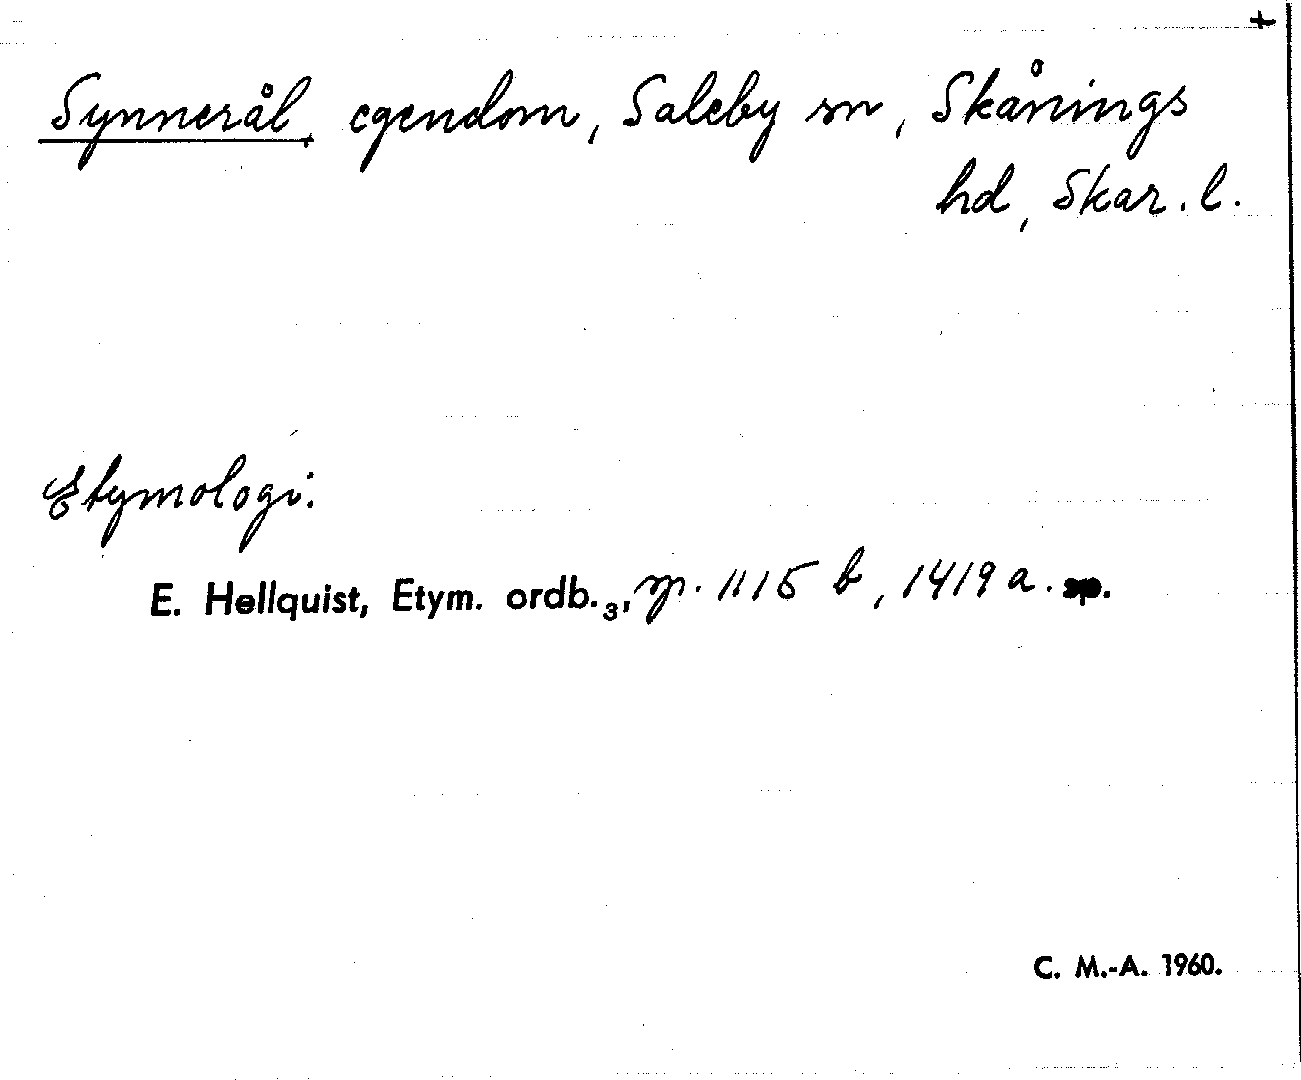 +
Synnerål, egendom, Saleby sn, Skånings
hd, Skar. l.
Etymologi:
E. Hellquist, Etym. ordb.₃, sp. 1115 b, 1419 a. sp.
C. M.-A. 1960.